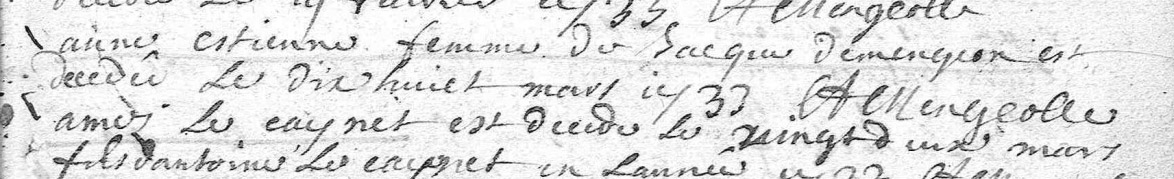 decedé le 19 fevrier 1733 A Mengeolle
anne estienne femme de Jacque demengeon est
decedé le dix huict mars 1733 A Mengeolle
amé le caynet est decede le vingt deux mars
fils dantoine le caynet en Lannee 1733 A Men